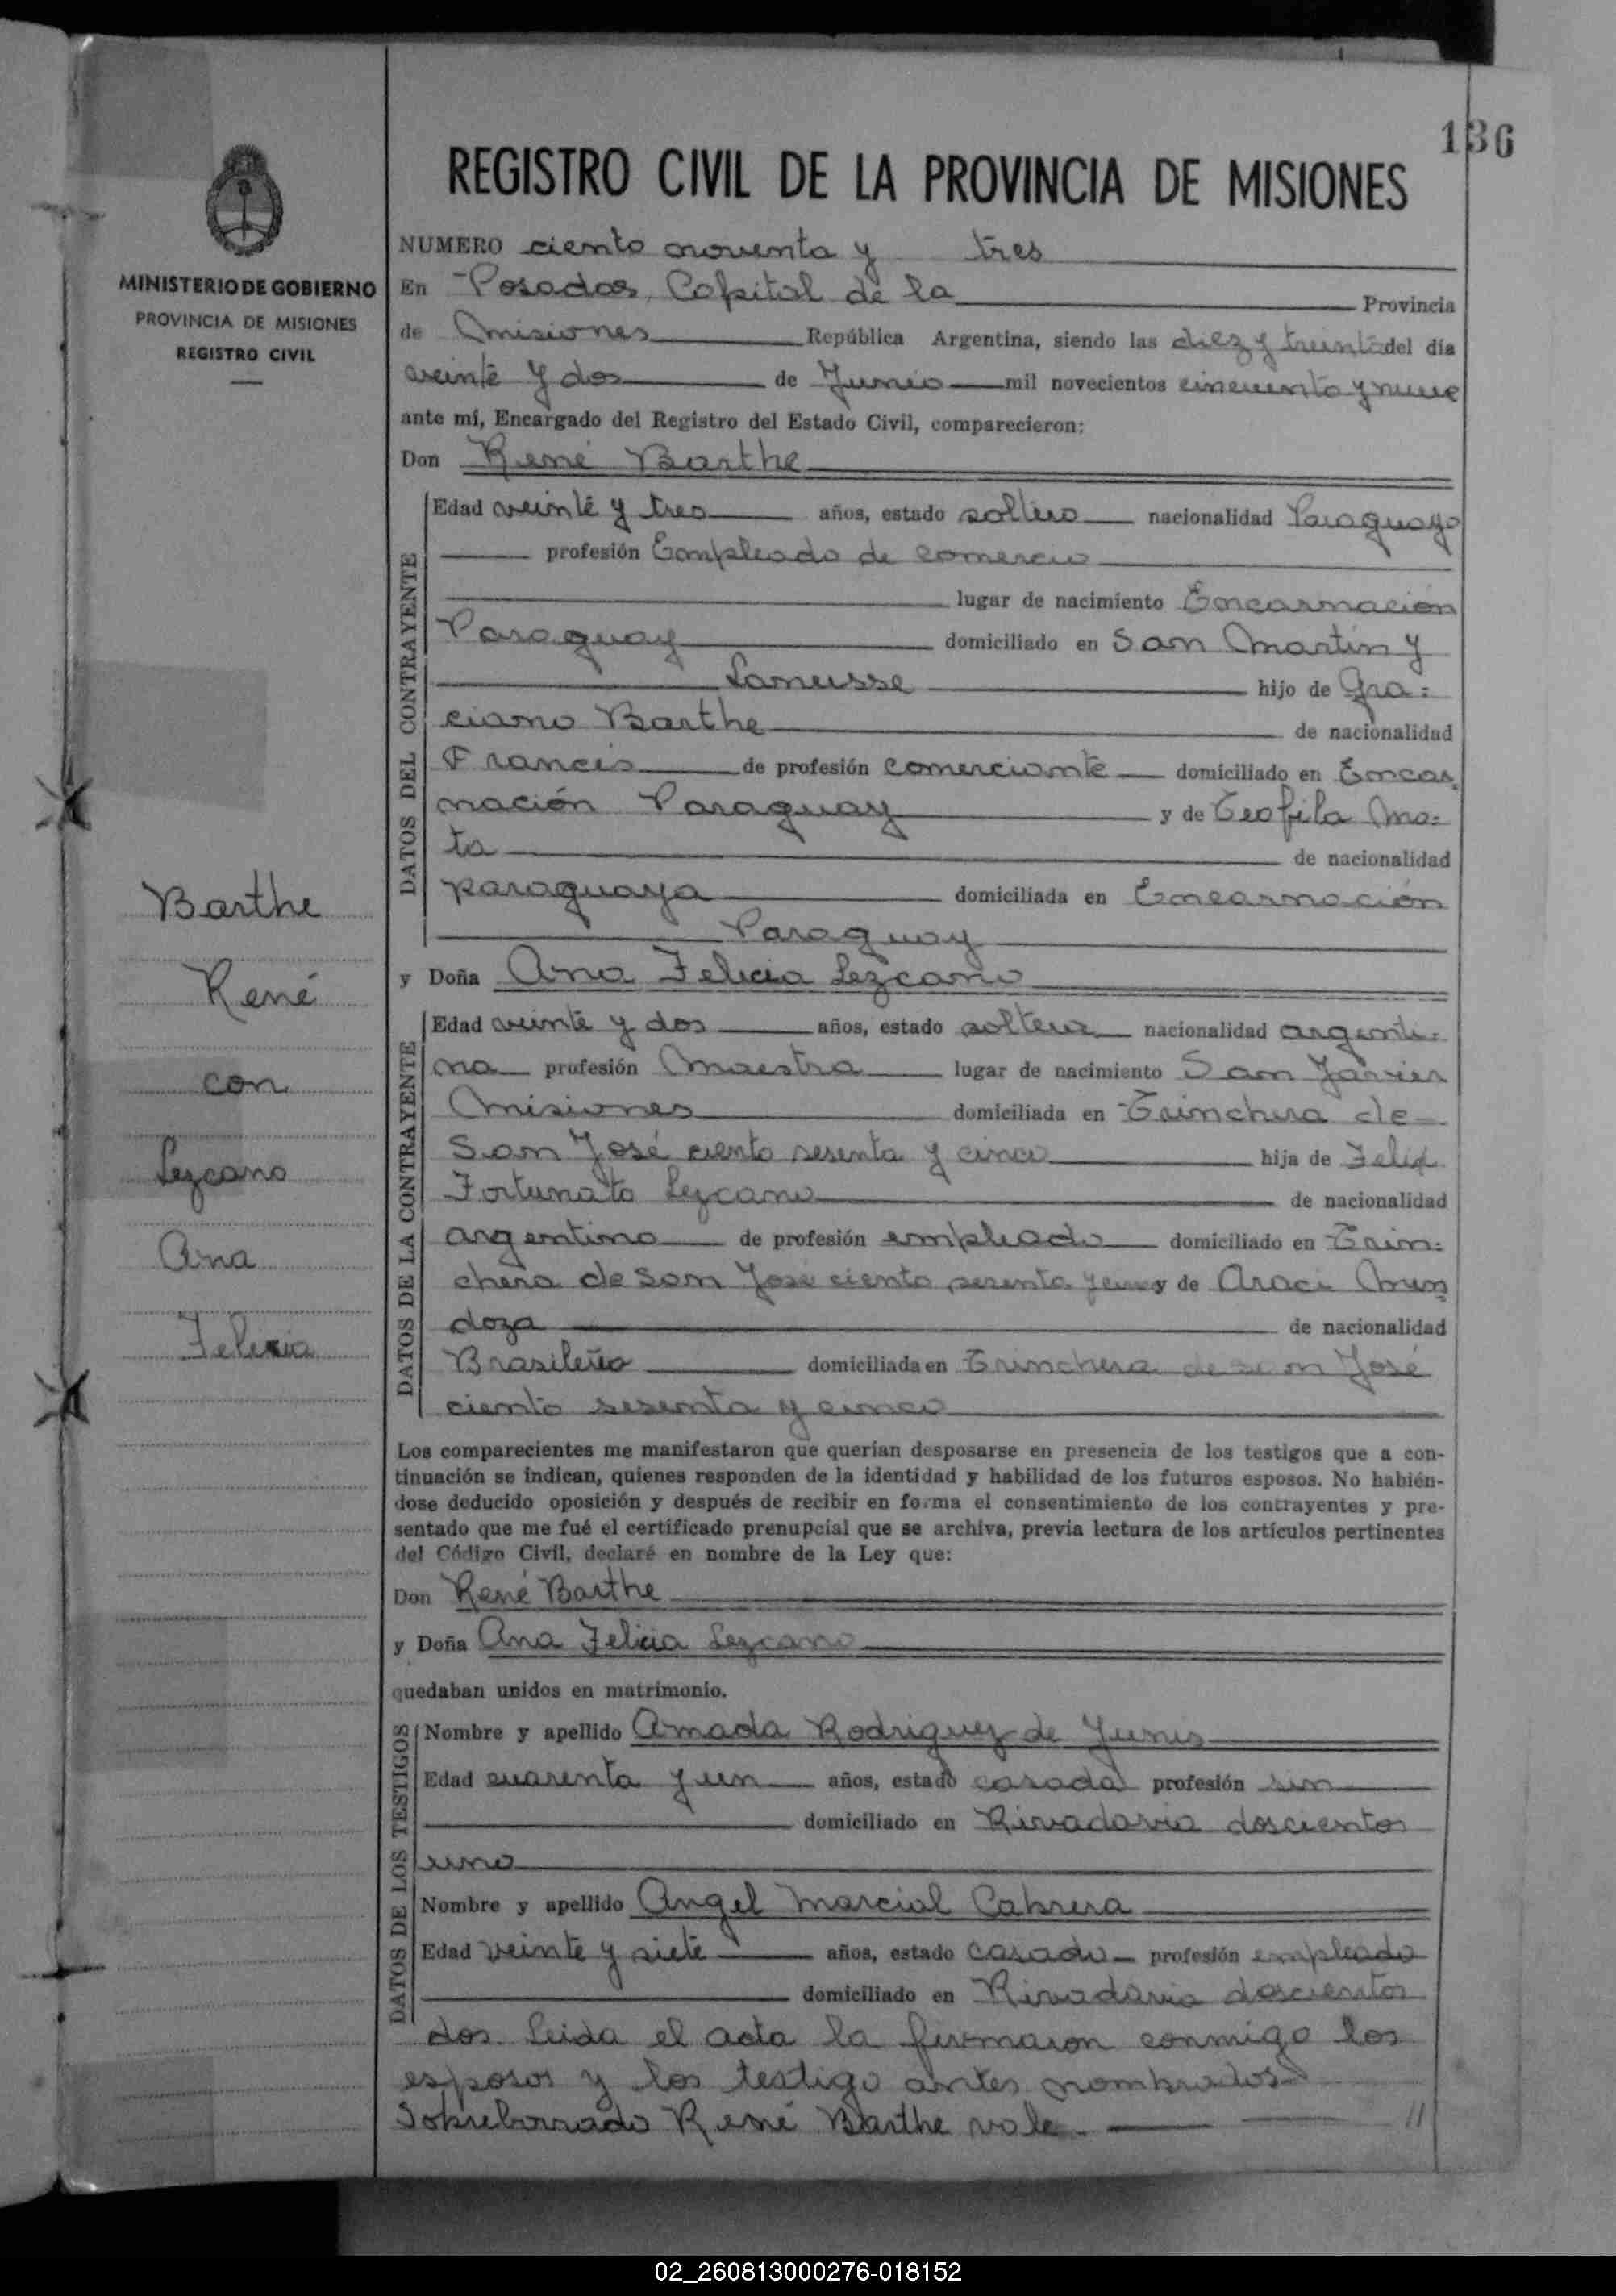 136
REGISTRO CIVIL DE LA PROVINCIA DE MISIONES
MINISTERIO DE GOBIERNO
PROVINCIA DE MISIONES
REGISTRO CIVIL
Barthe
René
con
Lezcano
Ana
Felicia
NUMERO ciento noventa y tres
En Posadas, Capital de la Provincia
de Misiones República Argentina, siendo las diez y treinta del día
veinte y dos de Junio mil novecientos cincuenta y nueve
ante mí, Encargado del Registro del Estado Civil, comparecieron:
Don René Barthe
DATOS DEL CONTRAYENTE
Edad veinte y tres años, estado soltero nacionalidad Paraguayo
profesión Empleado de comercio
lugar de nacimiento Encarnación
Paraguay domiciliado en San Martín y
Lanusse hijo de Gra=
ciano Barthe de nacionalidad
Francés de profesión comerciante domiciliado en Encar
nación Paraguay y de Teofila Ma=
ta de nacionalidad
paraguaya domiciliada en Encarnación
Paraguay
y Doña Ana Felicia Lezcano
DATOS DE LA CONTRAYENTE
Edad veinte y dos años, estado soltera nacionalidad argenti=
na profesión Maestra lugar de nacimiento San Javier
Misiones domiciliada en Trinchera de
San José ciento sesenta y cinco hija de Felix
Fortunato Lezcano de nacionalidad
argentino de profesión empleado domiciliado en Trin=
chera de San José ciento sesenta y cinco y de Araci Men
doza de nacionalidad
Brasileña domiciliada en Trinchera de San José
ciento sesenta y cinco
Los comparecientes me manifestaron que querían desposarse en presencia de los testigos que a con-
tinuación se indican, quienes responden de la identidad y habilidad de los futuros esposos. No habién-
dose deducido oposición y después de recibir en forma el consentimiento de los contrayentes y pre-
sentado que me fué el certificado prenupcial que se archiva, previa lectura de los artículos pertinentes
del Código Civil, declaré en nombre de la Ley que:
Don René Barthe
y Doña Ana Felicia Lezcano
quedaban unidos en matrimonio.
DATOS DE LOS TESTIGOS
Nombre y apellido Amada Rodriguez de Yunis
Edad cuarenta y un años, estado casada profesión sin
domiciliado en Rivadavia doscientos
uno
Nombre y apellido Angel Marcial Cabrera
Edad veinte y siete años, estado casado profesión empleado
domiciliado en Rivadavia doscientos
dos. Leida el acta la firmaron conmigo los
esposos y los testigo antes nombrados
Sobreborrado René Barthe vale //
02_260813000276-018152